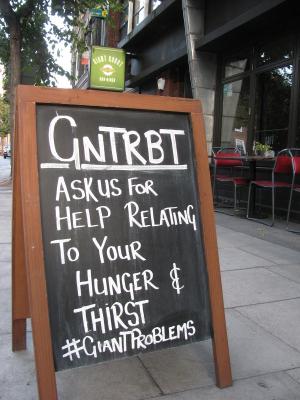 GNTRBT
ASK US FOR
HELP RELATING
TO YOUR
HUNGER &
THIRST
#GIANTPROBLEMS